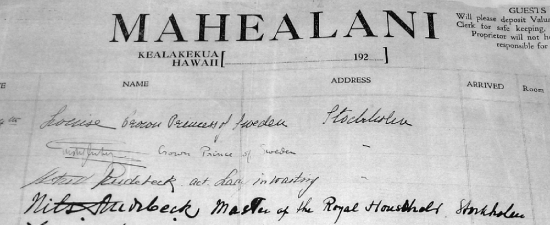 GUESTS
Will please deposit Valu
Clerk for safe keeping,
Proprietor will not h
responsible for
MAHEALANI
KEALAKEKUA
HAWAII [ 192 ]
NAME ADDRESS ARRIVED Room
Louise Crown Princess of Sweden Stockholm
Crown Prince of Sweden "
Rudebeck act. Lady in waiting "
Nils Rudebeck Master of the Royal Household, Stockholm